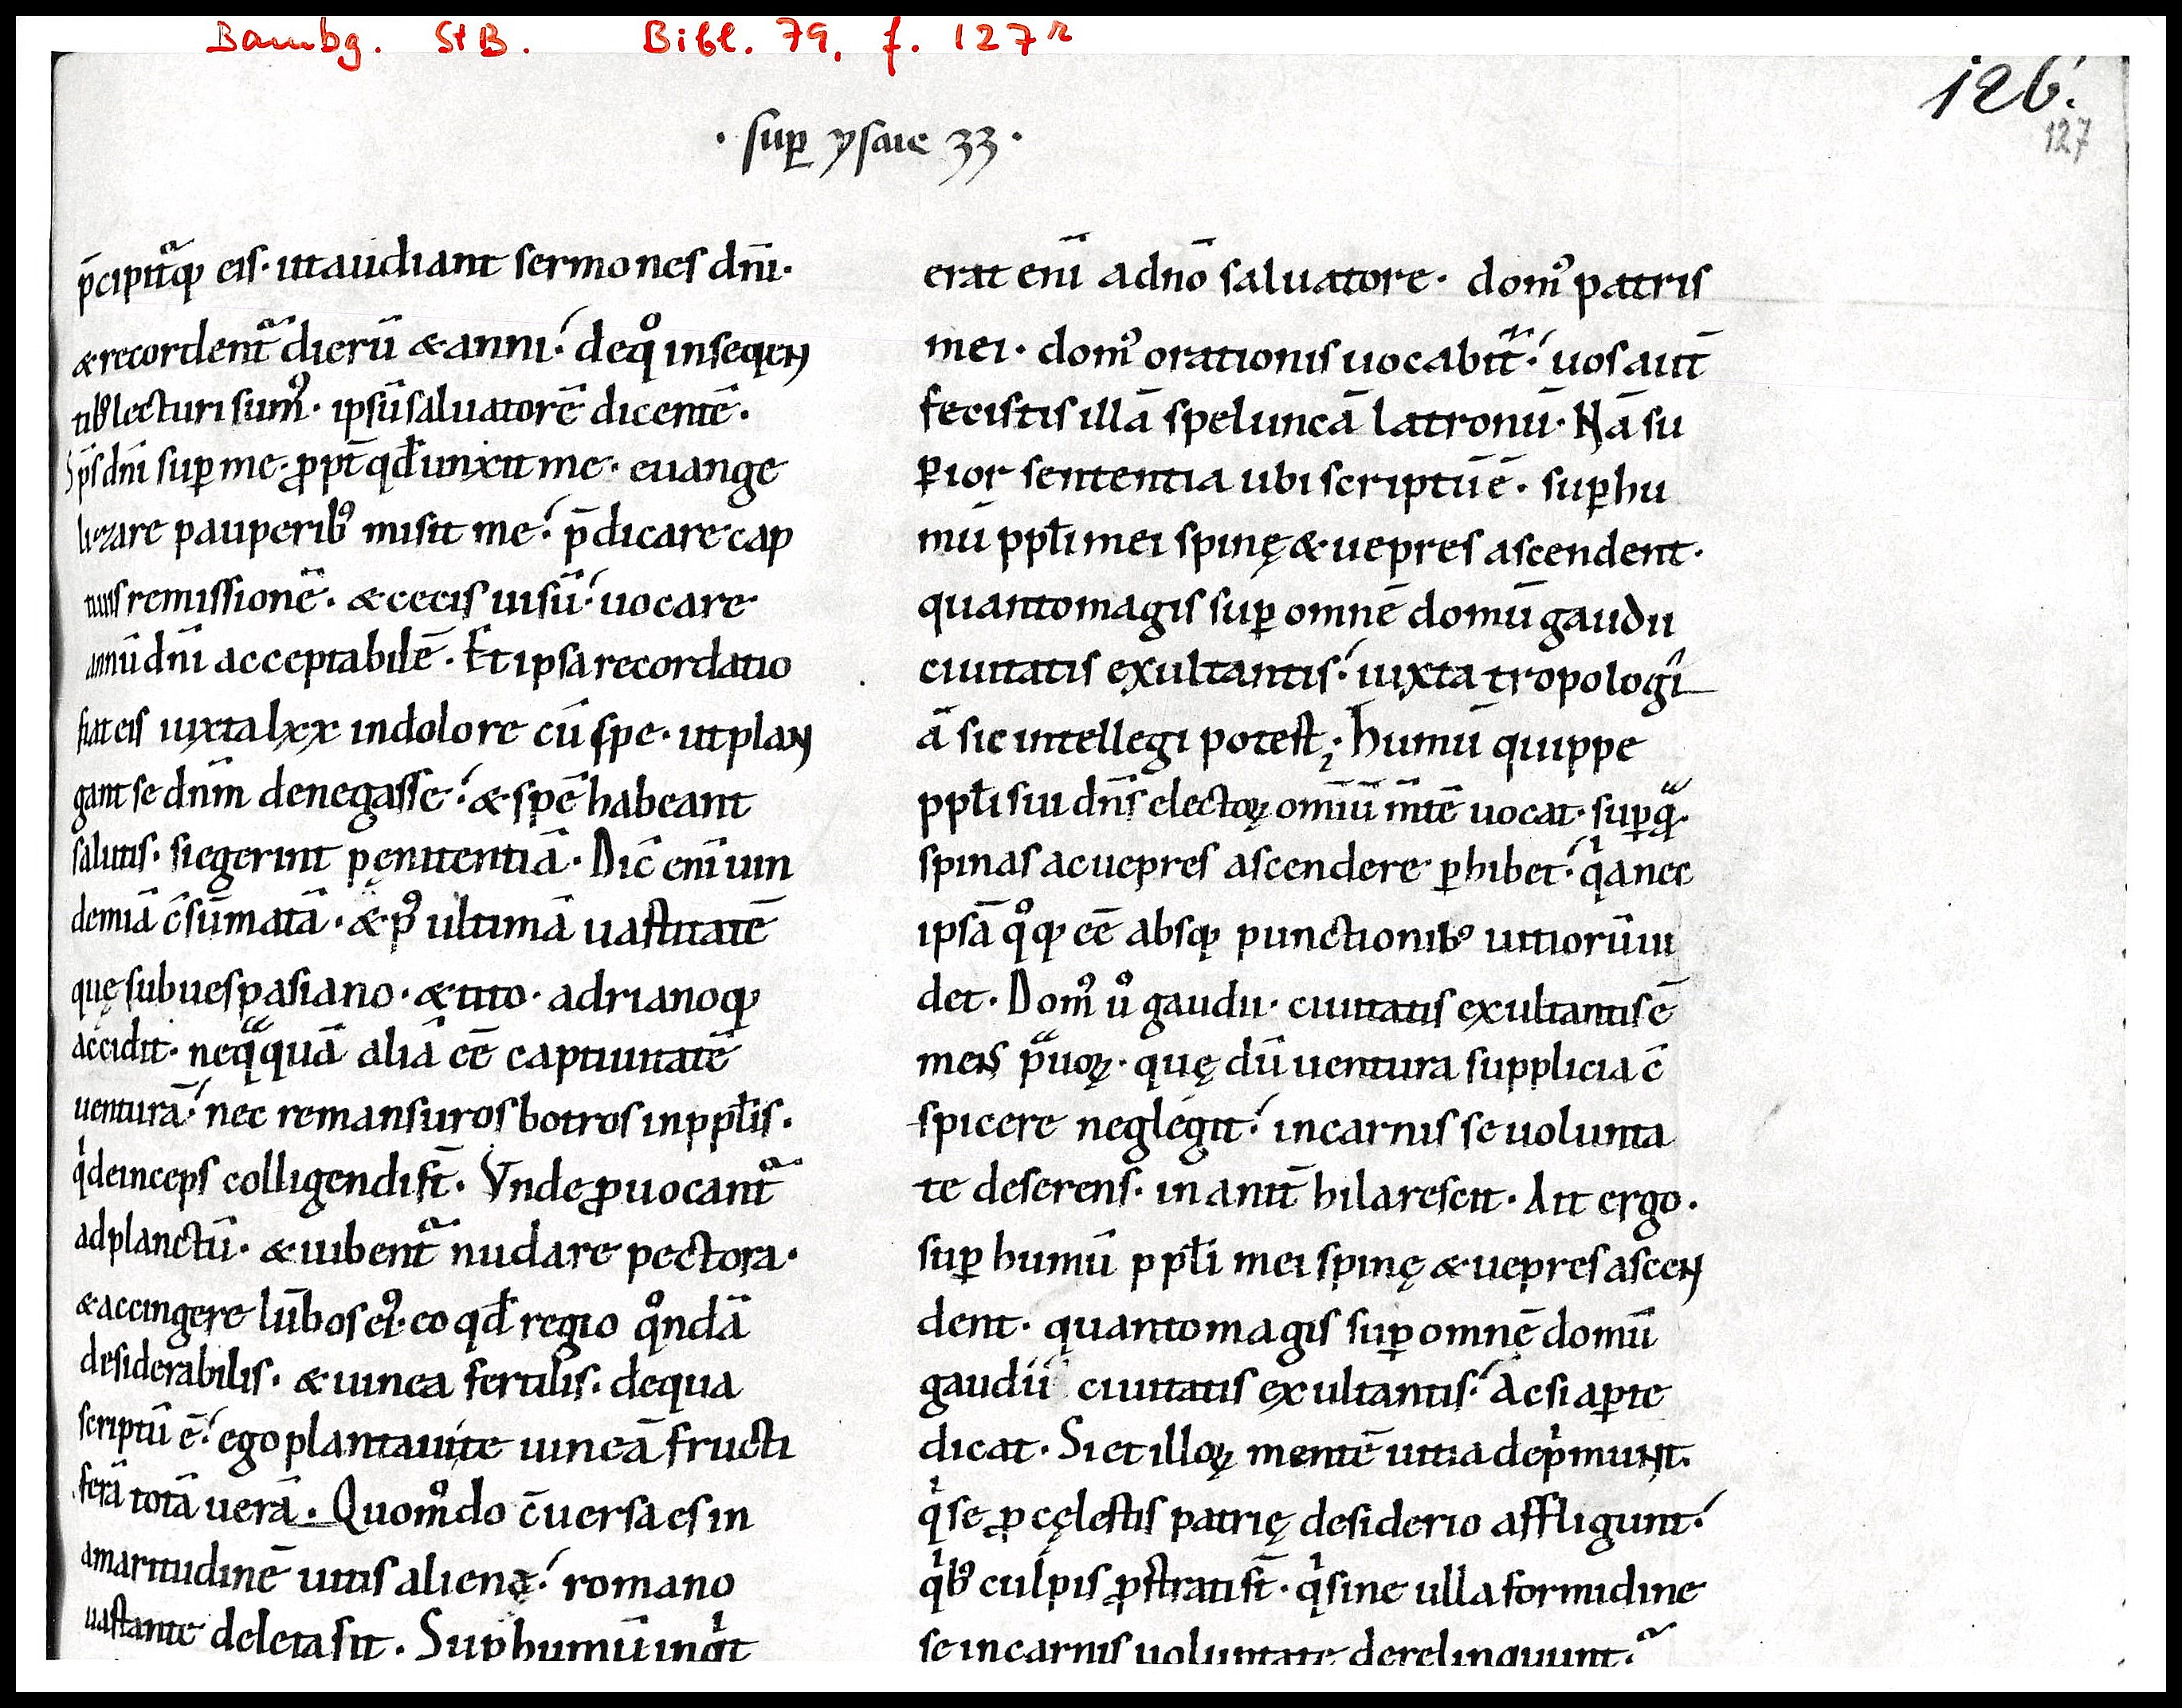 Bambg. StB. Bibl. 79, f. 127r
126.
127
· suꝑ ysaie 33 ·
p̄cipitᷓqꝫ eis· utaudiant sermones dn̄i·
&recordentᷓ dierū & anni· deqͦ inseqen
tibꝰ lecturi sumꝰ· ipsū saluatorē dicentē·
Sp̄s dn̄i suꝑ me· ꝓpt̄ qd̄ unxit me· euange
lizare pauperibꝰ misit me· p̄dicare cap
tiuis remissionē· & cecis uisū· uocare
annū dn̄i acceptabilē· Et ipsa recordatio
fiat eis iuxta lxx indolore cū spe· ut plan
gant se dnm̄ denegasse· & spē habeant
salutis· si egerint pęnitentiā· Dic̄ enī uin
demiā c̄sūmatā· & pꝰ ultimā uastitatē
quę sub uespasiano· & tito· adrianoqꝫ
accidit· neqᷓquā aliā eē captiuitatē
uenturā· nec remansuros botros in ppl̄is·
qͥ deinceps colligendi st̄· Vnde ꝓuocantᷓ
ad planctū· & iubentᷓ nudare pectora·
& accingere lūbos eiꝰ· eo qd̄ regio qͦndā
desiderabilis· & uinea fertilis· dequa
scriptū ē· ego plantaui te uineā fructi
ferā totā uerā· Quomͦdo c̄uersa es in
amaritudinē uitis alienę· romano
uastante deleta sit· Suꝑ humū inqͥt
erat enī adnō saluatore· domꝰ patris
mei· domꝰ orationis uocabit᷑· uos aut̄
fecistis illā speluncā latronū· Nā su
ꝑior sententia ubi scriptū ē· suꝑ hu
mū ppl̄i mei spinę & uepres ascendent·
quantomagis suꝑ omnē domū gaudii
ciuitatis exultantis· iuxta tropologi
ā sic intellegi potest· humū quippe
ppl̄i sui dn̄s electoꝝ omīū m̄tē uocat· suꝑ qᷓ·
spinas ac uepres ascendere ꝑhibet· qͥa nec
ipsā qͦqꝫ eē absqꝫ punctionibꝰ uitiorū ui
det· Domꝰ uͦ gaudii· ciuitatis exultantis ē
mens pᷓuoꝝ· quę dū uentura supplicia c̄
spicere neglegit· in carnis se uolunta
te deserens· inanit̄ hilarescit· Ait ergo·
suꝑ humū ppl̄i mei spinę & uepres ascen
dent· quantomagis suꝑ omnē domū
gaudii ciuitatis exultantis· Ac si aꝑte
dicat· Si et illoꝝ mentē uitia dep̍munt·
qͥ se ꝓ cęlestis patrię desiderio affligunt·
qͥbꝰ culpis ꝓstrati st̄· qͥ sine ulla formidine
se in carnis uoluntate derelinquunt·